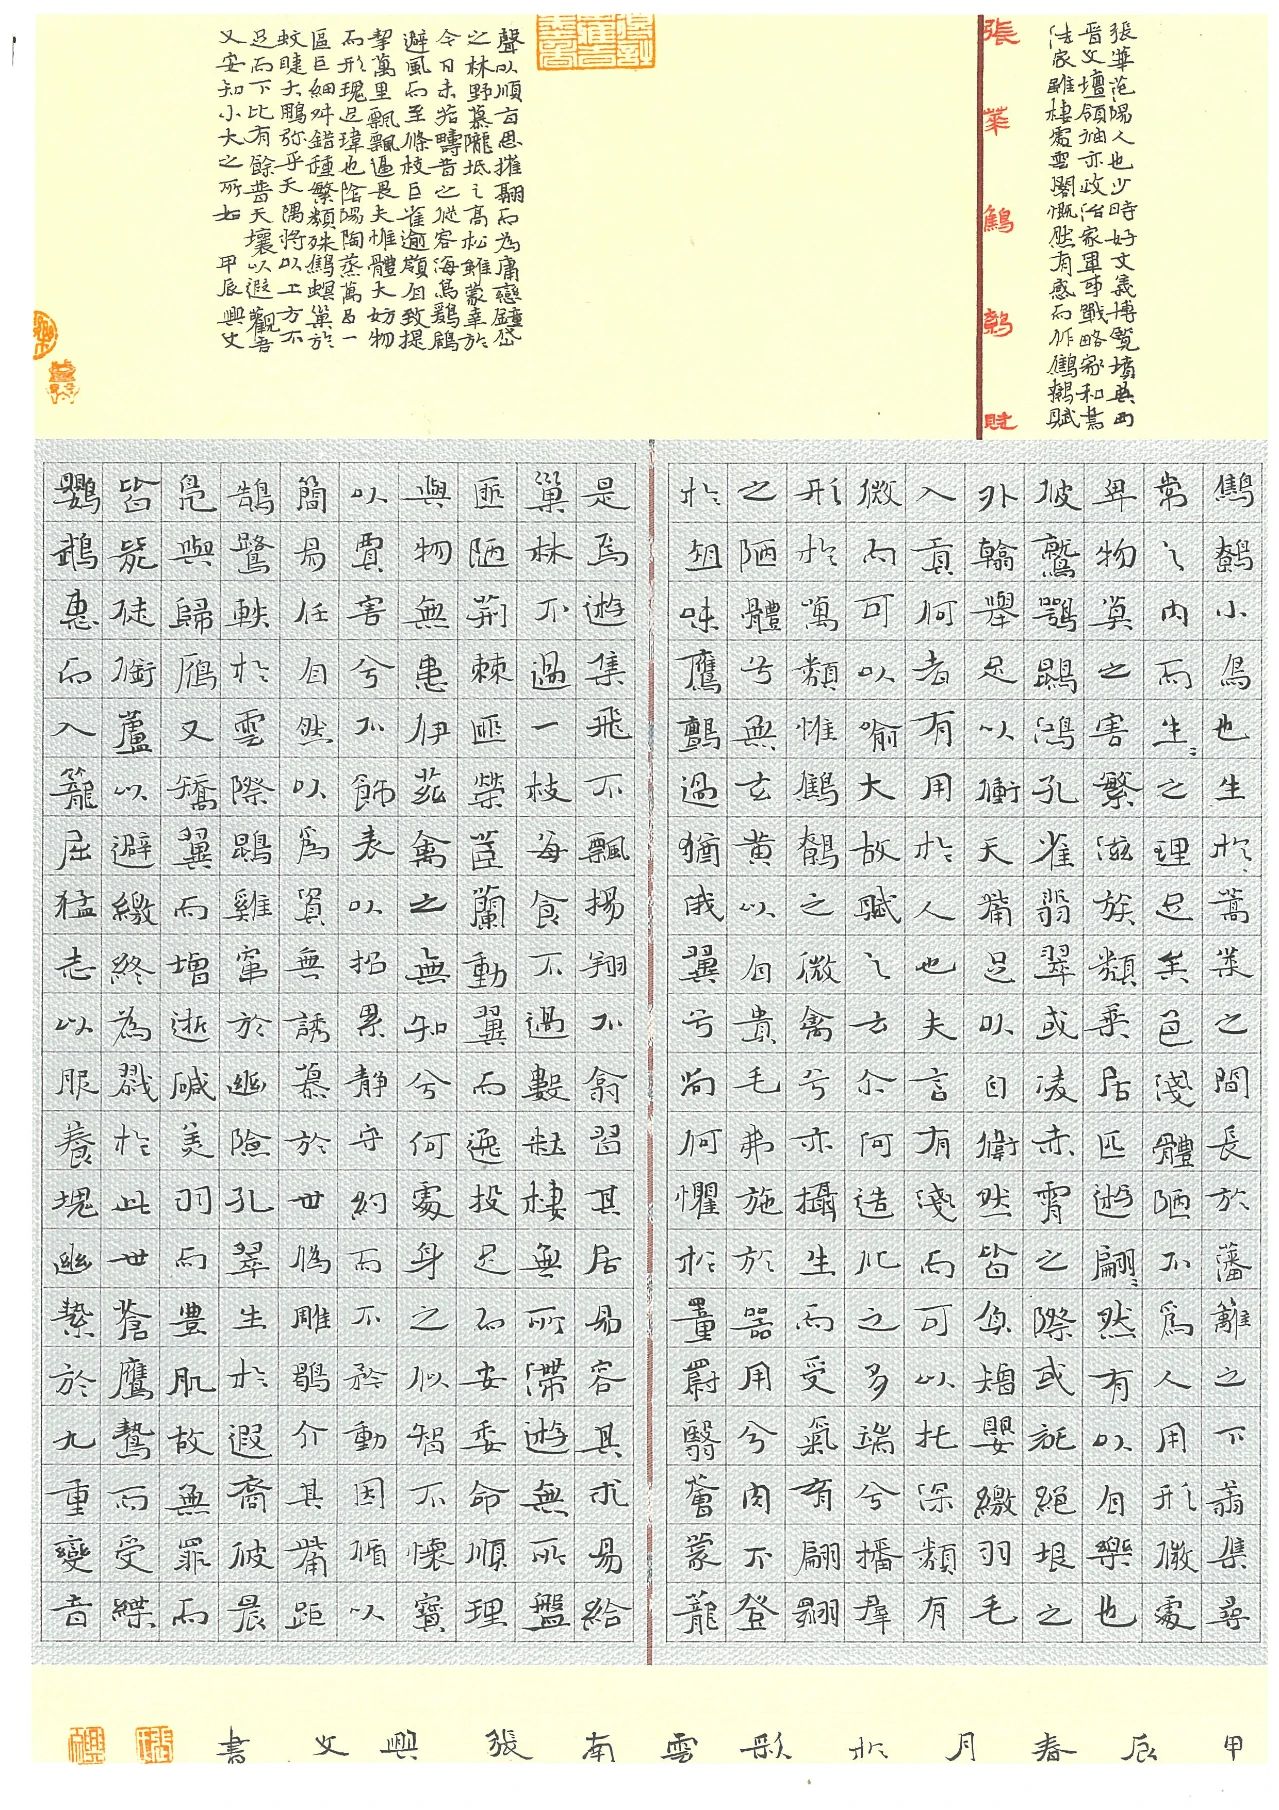 張華范陽人也少時好文義博覽墳典西
晉文壇領袖亦政治家軍事戰略家和書
法家雖棲處雲閣慨然有感而作鷦鷯賦
張華鷦鷯賦
鷦鷯小鳥也生於蒿萊之間長於藩籬之下翥集尋
常之內而生〻之理足矣色淺體陋不爲人用形微處
卑物莫之害繁滋族類乘居匹遊翩〻然有以自樂也
彼鷲鶚鵾鴻孔雀翡翠或凌赤霄之際或託絕垠之
外翰舉足以衝天觜足以自衛然皆負矰嬰繳羽毛
入貢何者有用於人也夫言有淺而可以托深類有
微而可以喻大故賦之云尒何造化之多端兮播群
形於萬類惟鷦鷯之微禽兮亦攝生而受氣育翩翾
之陋體兮無玄黃以自貴毛弗施於器用兮肉不登
於俎味鷹鸇過猶俄翼兮尚何懼於罿罻翳薈蒙蘢
是焉遊集飛不飄揚翔不翕習其居易容其求易給
巢林不過一枝每食不過數粒棲無所滯遊無所盤
匪陋荊棘匪榮茝蘭動翼而逸投足而安委命順理
與物無患伊茲禽之無知兮何處身之似智不懷寶
以賈害兮不飾表以招累静守約而不矜動因循以
簡易任自然以爲資無誘慕於世僞雕鶡介其觜距
鵠鷺軼於雲際鵾雞竄於幽險孔翠生於遐裔彼晨
鳧與歸雁又矯翼而增逝碱美羽而豐肌故無罪而
皆斃徒銜蘆以避繳終為戮於此世蒼鷹鷙而受緤
鸚鵡惠而入籠屈猛志以服養塊幽縶於九重變音
聲以順旨思摧翮而為庸戀鐘岱
之林野慕隴坻之高松雖蒙幸於
今日未若疇昔之從容海鳥鶢鶋
避風而至條枝巨雀逾嶺自致提
挈萬里飄飄逼畏夫惟體大妨物
而形瑰足瑋也陰陽陶蒸萬品一
區巨細舛錯種繁類殊鷦螟巢於
蚊睫大鵬弥乎天隅將以上方不
足而下比有餘普天壤以遐觀吾
又安知小大之所如 甲辰興文
甲辰春月於彩雲南張興文書